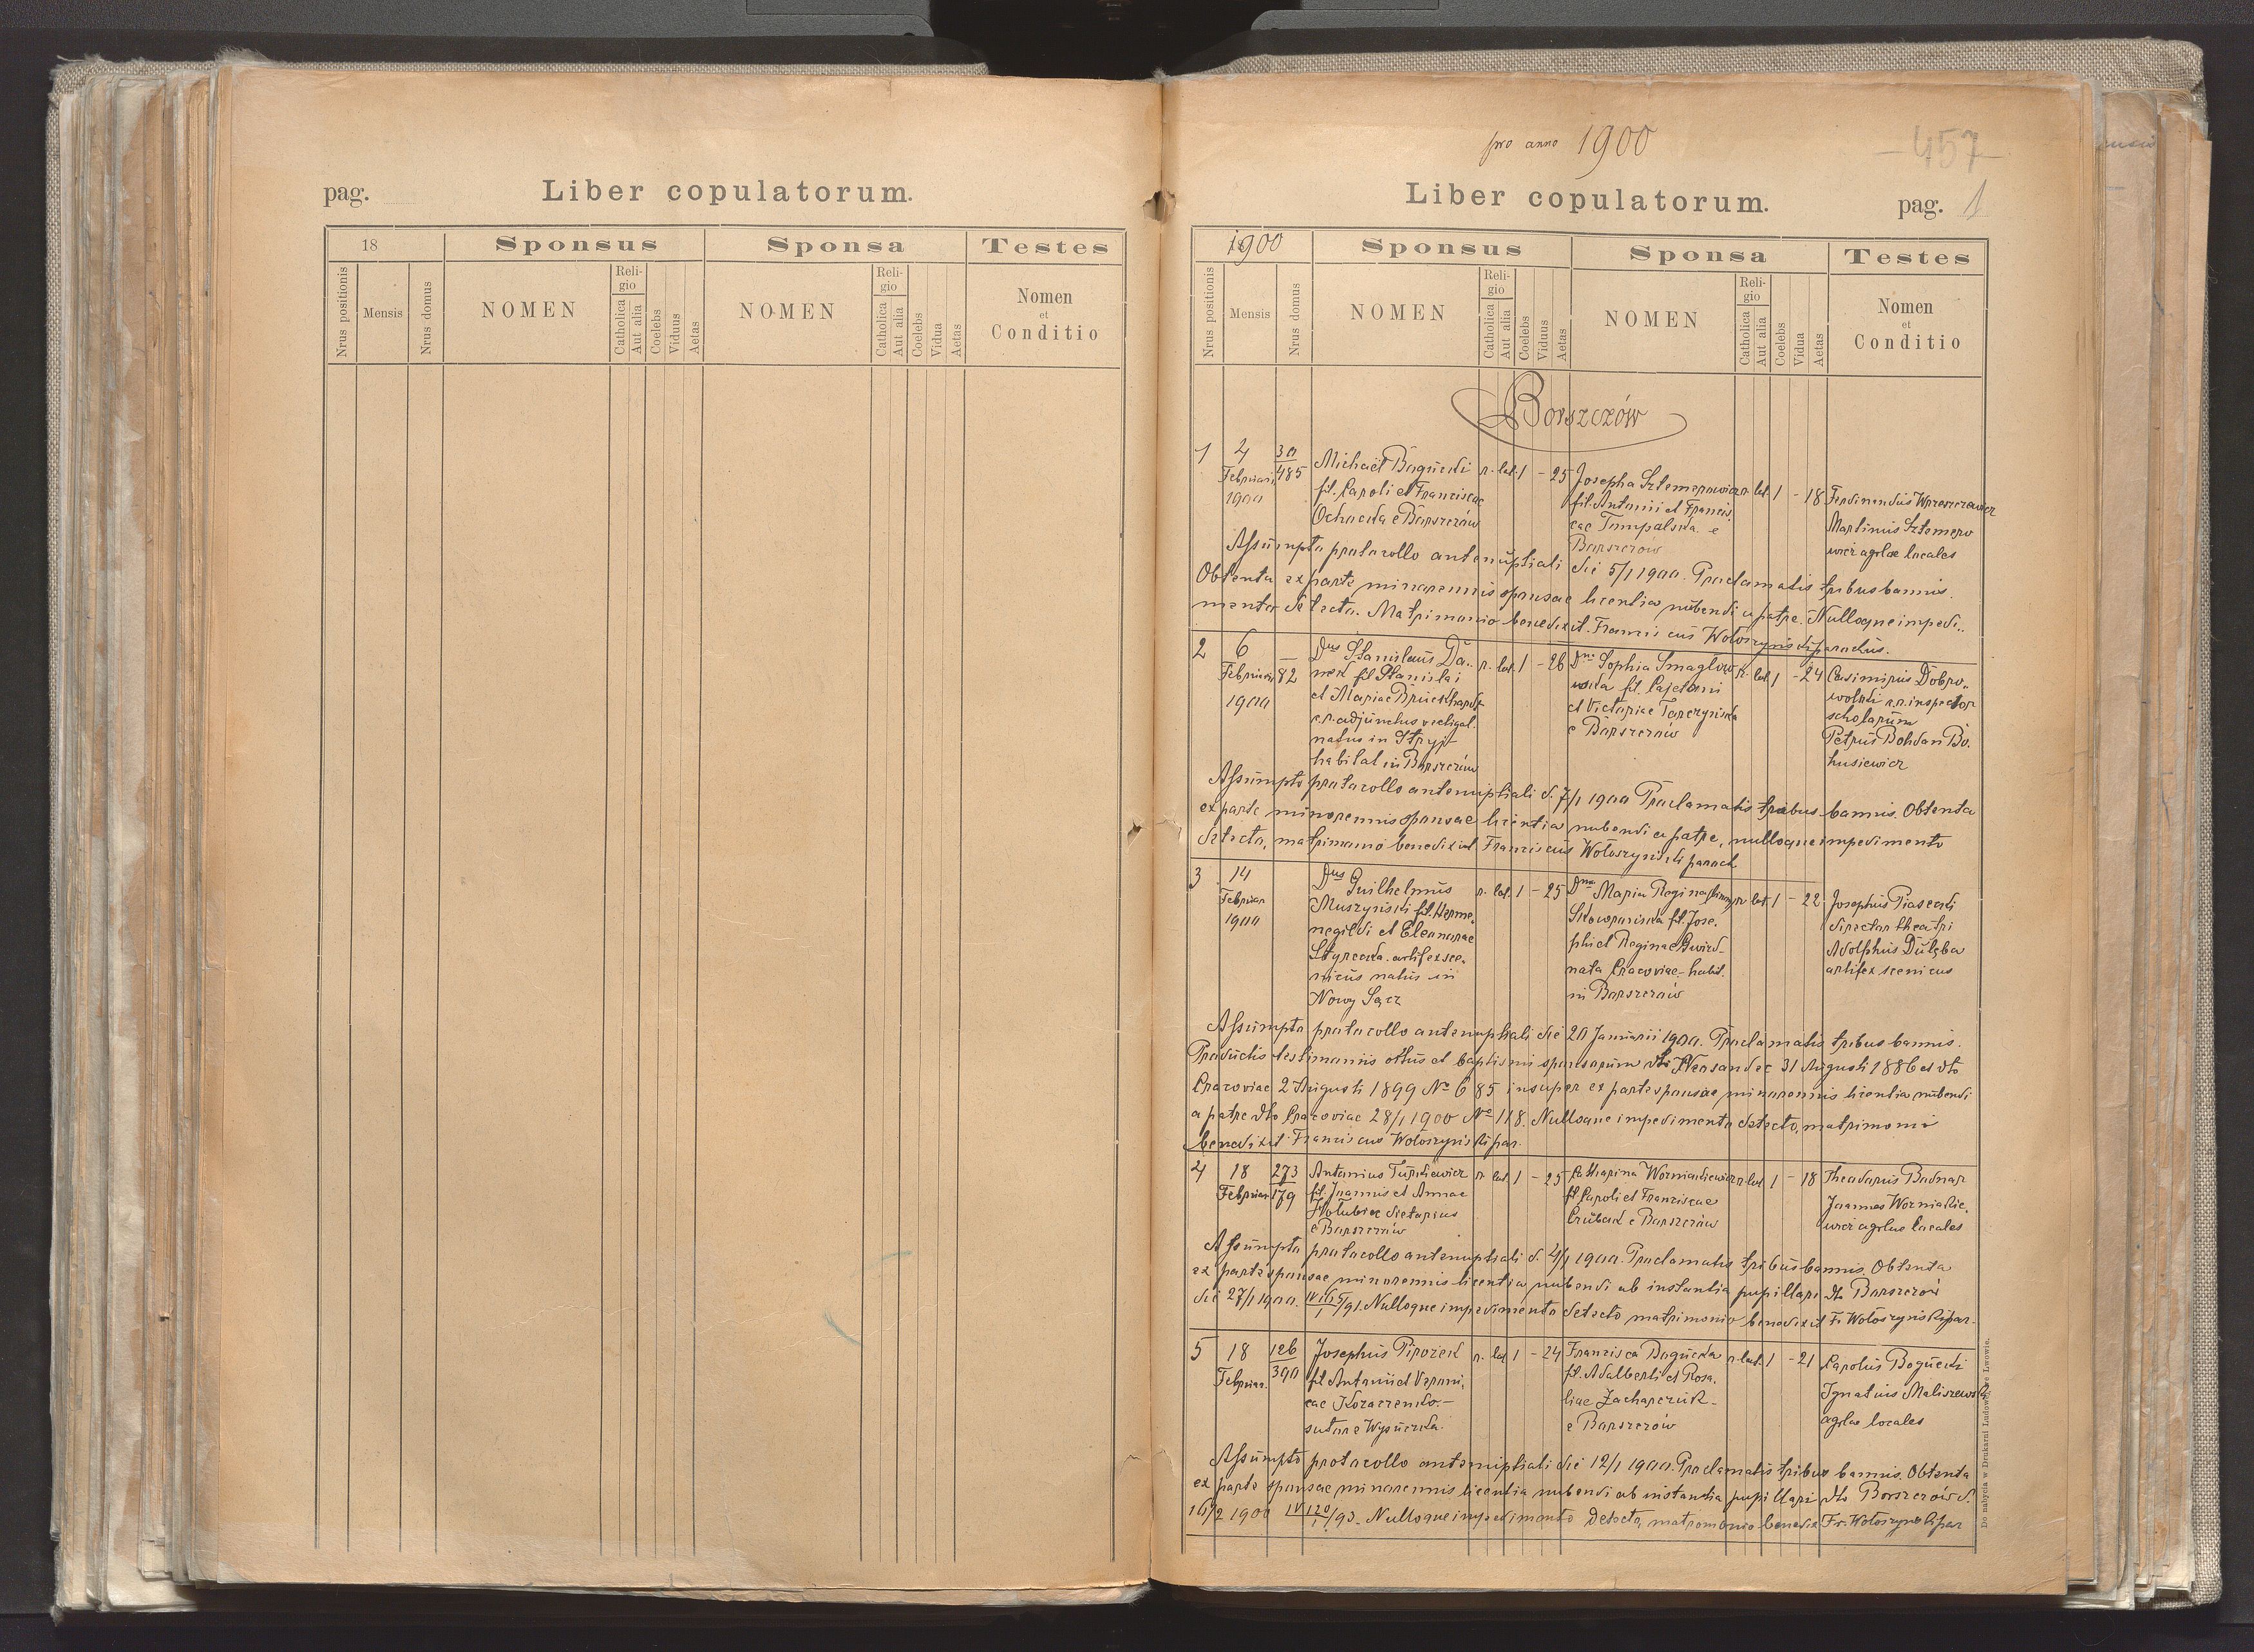 pag. Liber copulatorum.
18 Sponsus Sponsa Testes
Nrus positionis Mensis Nrus domus NOMEN Religio Catholica Aut alia Coelebs Viduus Aetas NOMEN Religio Catholica Aut alia Coelebs Vidua Aetas Nomen et Conditio
pro anno 1900
-457-
Liber copulatorum. pag. 1
1900 Sponsus Sponsa Testes
Nrus positionis Mensis Nrus domus NOMEN Religio Catholica Aut alia Coelebs Viduus Aetas NOMEN Religio Catholica Aut alia Coelebs Vidua Aetas Nomen et Conditio
Borszczów
1 4 Februarii 1900 30/485
Michaël Bogucki
fil. Caroli et Franciscae
Ochocka e Borszczów
r. lat. 1 - 25
Josepha Sztemerowicz
fil. Antonii et Francis
cae Tompalska e
Borszczów
r. lat. 1 - 18
Ferdinandus
Martinus Sztemero
wicz agrlae locales
Assumpto protocollo antenuptiali die 5/1 1900. Proclamatis tribus bannis.
Obtenta ex parte minorennis sponsae licentia nubendi a patre. Nulloque impedi„
mento detecto. Matrimonio benedixit Franciscus Wołoszyński parochus.
2 6 Februar 1900 82
Dnus Stanislaus Da„
nek fil Stanislai
et Mariae Bruckhardt
c.r. adjunctus vectigal.
natus in Stryj
habitat in Borszczów
r. lat. 1 - 26
Dna Sophia Smagłow
wska fil. Cajetani
et Victoriae Tarczyńska
e Borszczów
r. lat. 1 - 24
Casimirus Dobro„
wolski c.r. inspector
scholarum
Petrus Bohdan Bo.
husiewicz
Assumpto protocollo antenuptiali d. 7/1 1900 Proclamatis tribus bannis. Obtenta
ex parte minorennis sponsae licentia nubendi a patre, nulloque impedimento
detecto, matrimonio benedixit Franciscus Wołoszyński paroch
3 14 Februar 1900
Dnus Guilhelmus
Muszyński fil. Herme„
negildi et Eleonorae
artifex sce„
nicus natus in
Nowy Sącz
r. lat. 1 - 25
Dna Maria Regina
Skowrońska fil. Jose„
phi et Reginae
nata Cracoviae habit.
in Borszczów
r. lat. 1 - 22
Josephus Piasecki
director theatri
Adolphus Dulęba
artifex scenicus
Assumpto protocollo antenuptiali die 20 Januarii 1900. Proclamatis tribus bannis.
Productis testimoniis ortus et baptismi sponsorum dto Neosandec 31 Augusti 1886 et dto
Cracoviae 2 Augusti 1899 No 685 insuper ex parte sponsae minorennis licentia nubendi
a patre dto Cracoviae 28/1 1900 No 118. Nulloque impedimento detecto, matrimonio
benedixit Franciscus Wołoszyński par.
4 18 Februar 273/179
Antonius Turkiewicz
fil. Joannis et Annae
Hołubiec
e Borszczów
r. lat. 1 - 25
Catharina Worniakiewicz
fil Caroli et Franciscae
e Borszczów
r. lat. 1 - 18
Theodorus Bodnar
Joannes Worniakie„
wicz agrlae locales
Assumpto protocollo antenuptiali d. 4/1 1900. Proclamatis tribus bannis. Obtenta
ex parte sponsae minorennis licentia nubendi ab instantia pupillari dto Borszczów
die 27/1 1900. Nulloque impedimento detecto matrimonio benedixit Fr Wołoszyński par.
5 18 Februar. 126/390
Josephus Pirożek
fil Antonii et Veroni„
cae Kozaczenko
sutor e Wysuczka
r. lat 1 - 24
Francisca Bogucka
fil. Adalberti et Rosa„
liae Zacharczuk
e Borszczów
r. lat. 1 - 21
Carolus Bogucki
Ignatius Maliszewski
agrlae locales
Assumpto protocollo antenuptiali die 12/1 1900. Proclamatis tribus bannis. Obtenta
ex parte sponsae minorennis licentia nubendi ab instantia pupillari dto Borszczów d.
16/2 1900 Nulloque impedimento detecto, matrimonio benedix Fr. Wołoszyński par
Do nabycia w Drukarni Ludowej we Lwowie.